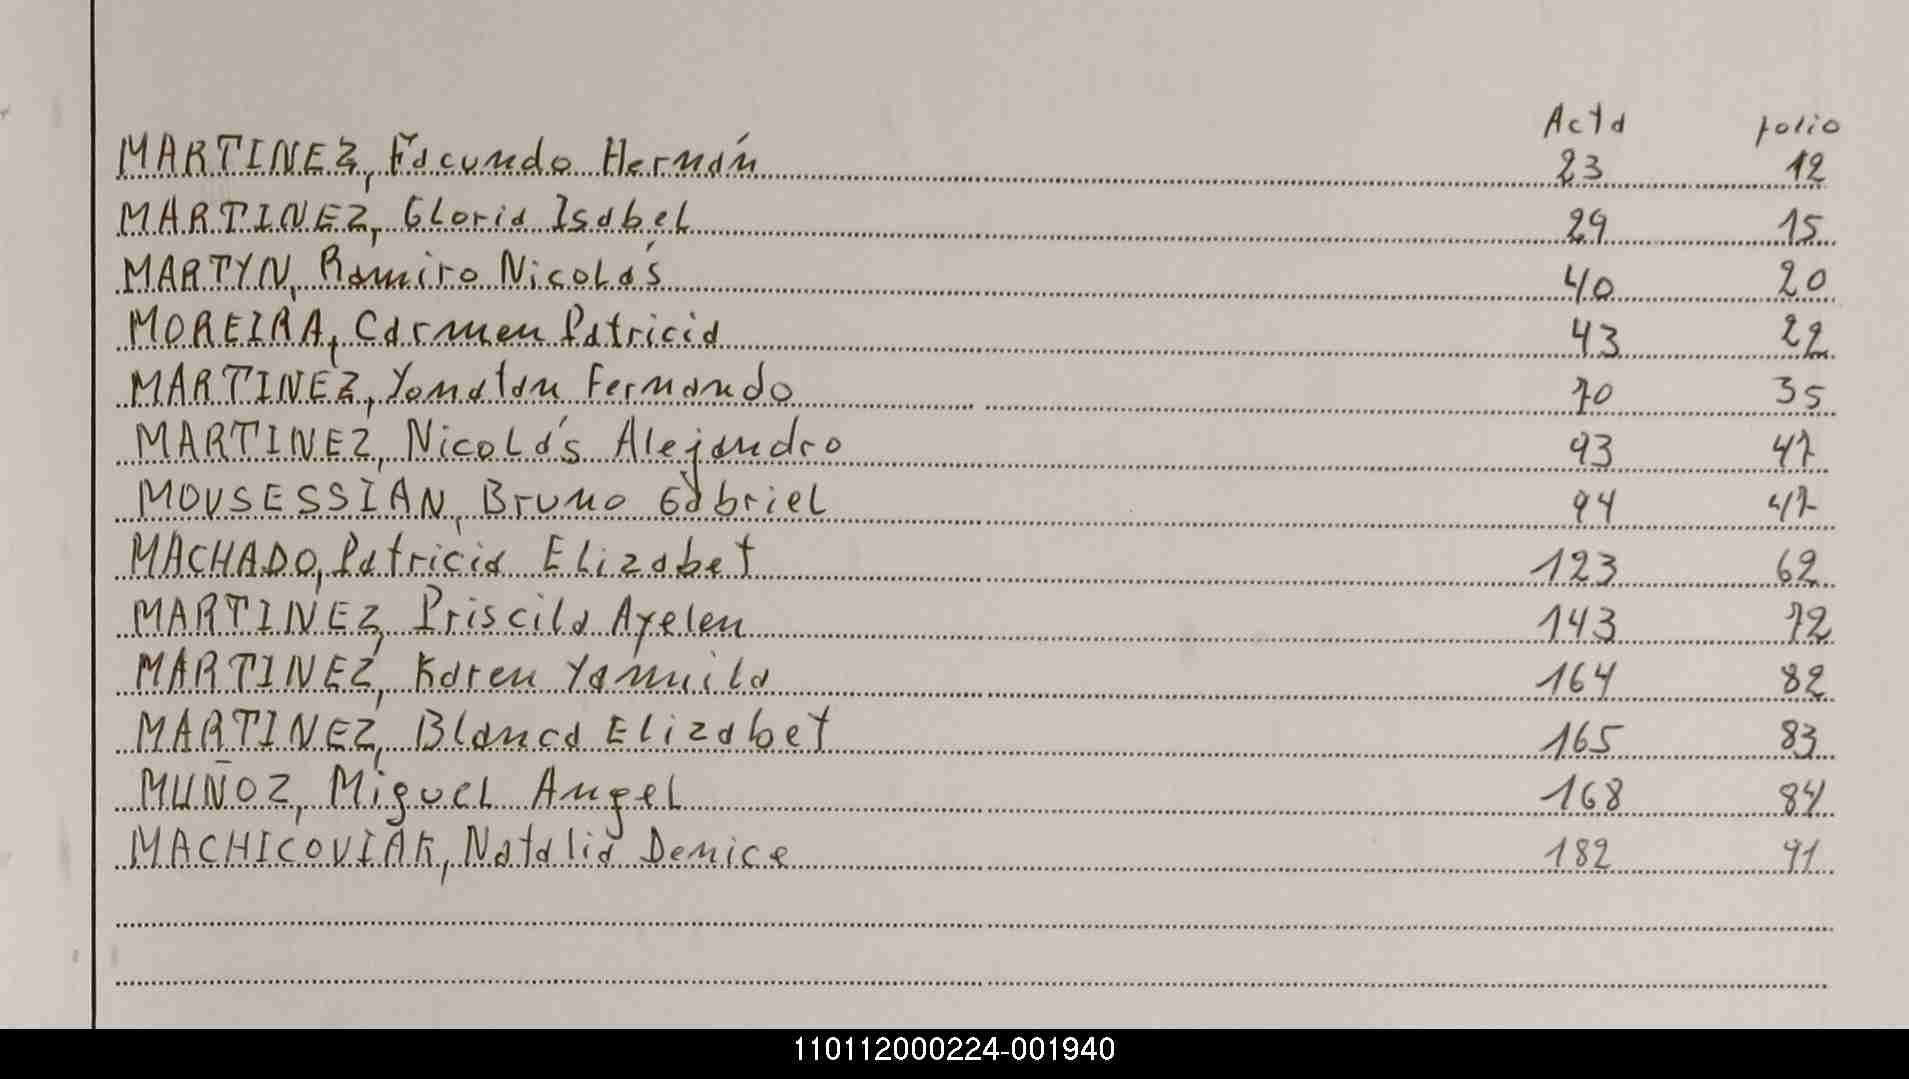 Acta folio
MARTINEZ, Facundo Hernán 23 12
MARTINEZ, Gloria Isabel 29 15
MARTYN, Ramiro Nicolás 40 20
MOREIRA, Carmen Patricia 43 22
MARTINEZ, Yonatan Fernando 70 35
MARTINEZ, Nicolás Alejandro 93 47
MOUSESSIAN, Bruno Gabriel 94 47
MACHADO, Patricia Elizabet 123 62
MARTINEZ, Priscila Ayelen 143 72
MARTINEZ, Karen Yamila 164 82
MARTINEZ, Blanca Elizabet 165 83
MUÑOZ, Miguel Angel 168 84
MACHICOVIAK, Natalia Denice 182 91
110112000224-001940